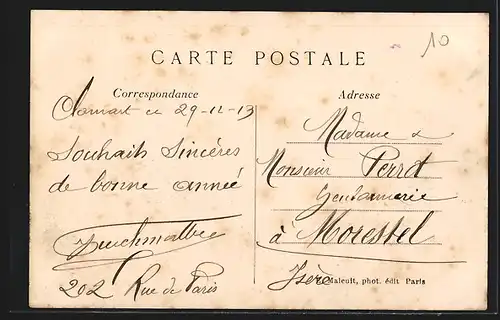 10
CARTE POSTALE
Correspondance
Clamart ce 29-12-13
Souhaits Sincères
de bonne année
202 Rue de Paris
Adresse
Madame &
Monsieur Perrot
Gendarmerie
à Morestel
Isère
Maleuit, phot. édit Paris